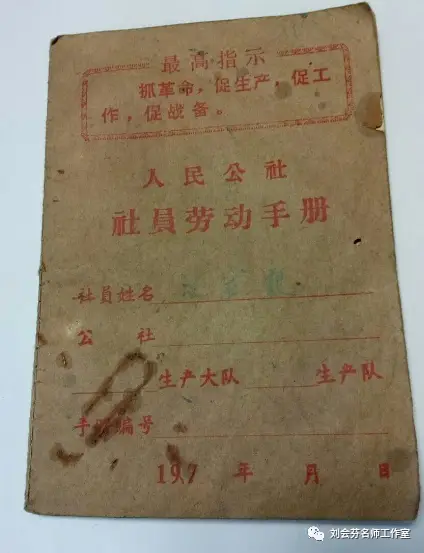 最高指示
抓革命，促生产，促工
作，促战备。
人民公社
社員劳动手册
社員姓名
公 社
生产大队 生产队
手册編号
197 年 月 日
刘会芬名师工作室